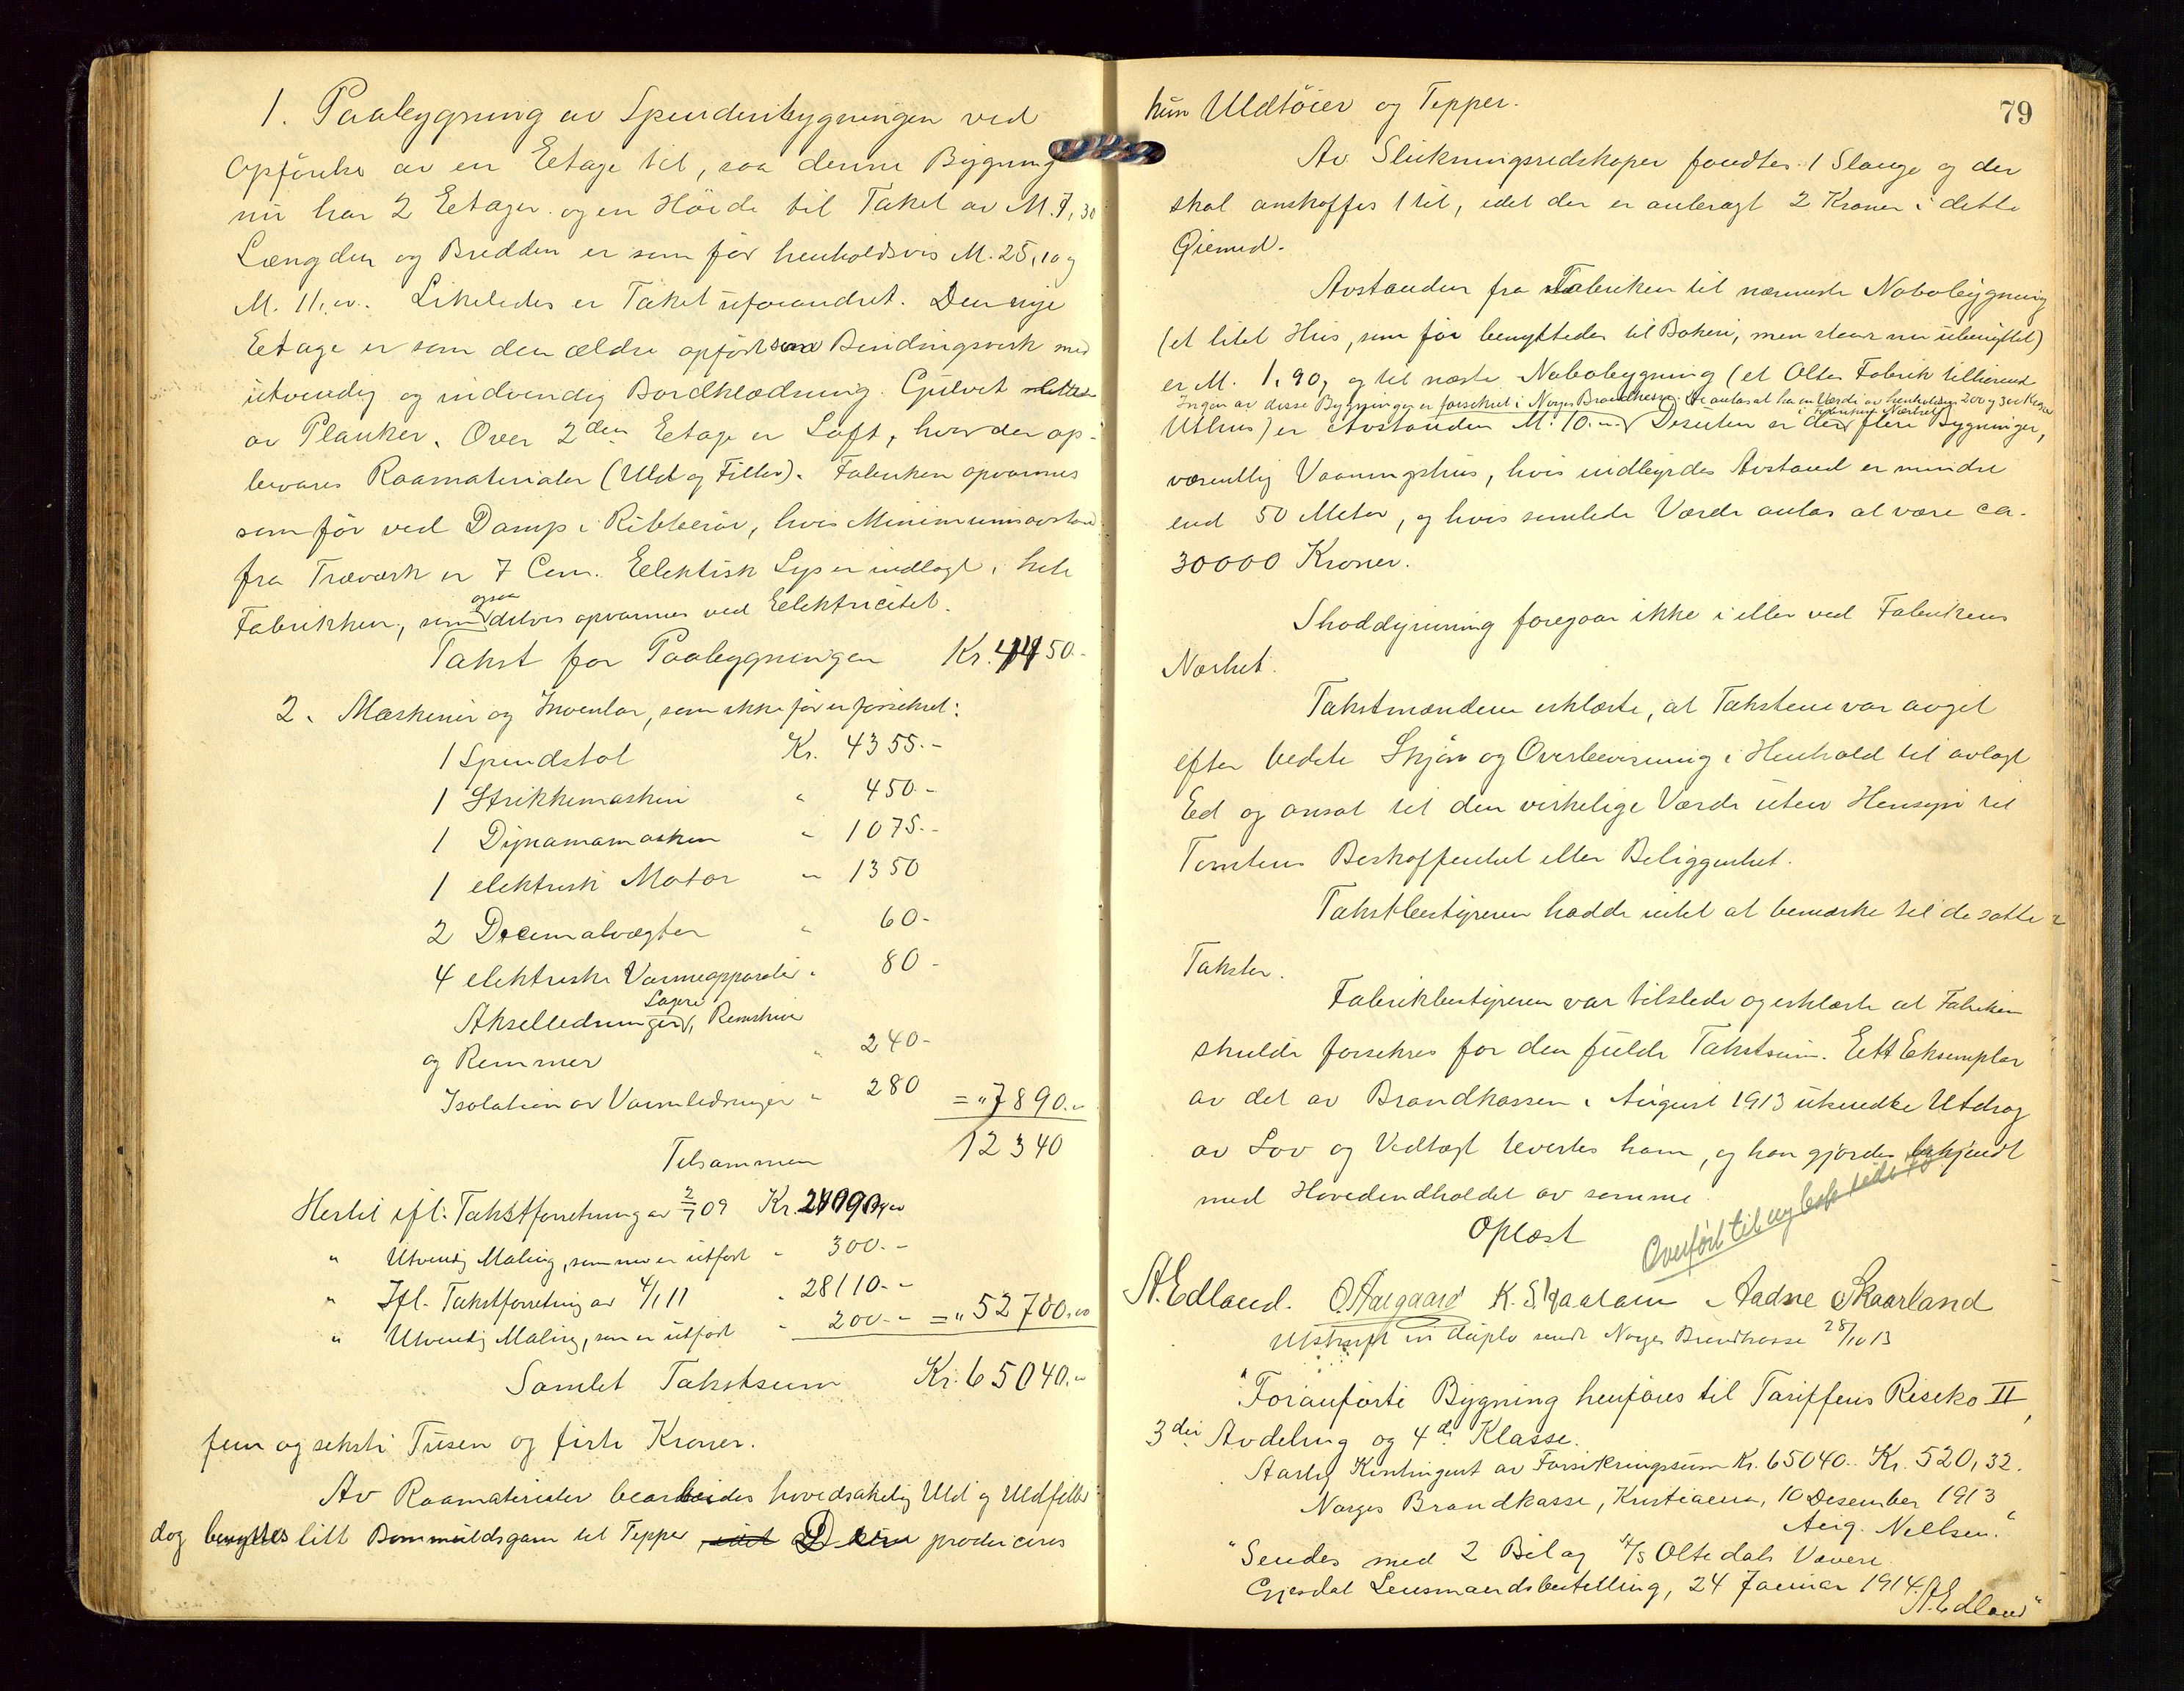 1. Paabygning av Spinderibygningen ved
Opförelse av en Etage til, saa denne Bygning
nu har 2 Etager og en Höide til Taket av M. 7,30
Længden og Bredden er som för henholdsvis M. 25,10 og
M. 11,00. Likeledes er Taket uforandret. Den nye
Etage er som den ældre opfört som Bindingsverk med
utvendig og indvendig Bordklædning. Gulvet
av Planker. Over 2den Etage er Loft, hvor der op-
bevares Raamaterialer (Uld og Filler). Fabriken opvarmes
som för ved Damp i Ribberör, hvis Minimumsavstand
fra Træværk er 7 Cm. Elektrisk Lys er indlagt i hele
Fabrikken, som ogsaa delvis opvarmes ved Elektricitet.
Takst for Paabygningen Kr. 4450.-
2. Maskiner og Inventar, som ikke för er forsikret:
1 Spindstol Kr. 4355.-
1 Strikkemaskin " 450.-
1 Dynamomaskin " 1075.-
1 elektrisk Motor " 1350
2 Decimalvægter " 60-
4 elektriske Varmeapparater " 80-
Akselledninger, Lagere, Remskiver
og Remmer " 240-
Isolation av Varmledninger " 280 = " 7890.-
Tilsammen 12340
Hertil ifl. Takstforretning av 2/7 09 Kr. 24090,00
" Utvendig Maling, som nu er utfört " 300.-
" Ifl. Takstforretning av 4/1 11 " 28110.-
" Utvendig Maling, som er utfört " 200.- = " 52700,00
Samlet Takstsum Kr. 65040.-
fem og seksti Tusen og förti Kroner.
Av Raamaterialer bearbeides hovedsakelig Uld og Uldfiller
dog benyttes litt Bomuldsgarn til Tepper. Der produceres
79
kun Uldtöier og Tepper.
Av Slukningsredskaper fandtes 1 Slange og der
skal anskaffes 1 til, idet der er anbragt 2 Kraner i dette
Öiemed.
Avstanden fra Fabriken til nærmeste Nabobygning
(et litet Hus, som för benyttedes til Bakeri, men staar nu ubenyttet)
er M. 1,90, og til næste Nabobygning (et Oltedals Fabrik tilhörende
Ingen av disse Bygninger er forsikret i Norges Brandkasse. De antas at ha en Værdi av henholdsvis 200 og 300 Kroner
Uthus) er Avstanden M. 10.00. Desuten er der i Fabrikens Nærhet flere Bygninger,
væsentlig Vaaningshus, hvis indbyrdes Avstand er mindre
end 50 Meter, og hvis samlede Værdi antas at være ca.
30000 Kroner.
Shoddyrivning foregaar ikke i eller ved Fabrikens
Nærhet.
Takstmændene erklærte, at Taksten var avgit
efter bedste Skjön og Overbevisning i Henhold til avlagt
Ed og ansat til den virkelige Værdi uten Hensyn til
Tomtens Beskaffenhet eller Beliggenhet.
Takstbestyreren hadde intet at bemærke til de satte
Takster.
Fabrikbestyreren var tilstede og erklærte at Fabriken
skulde forsikres for den fulde Takstsum. Ett Eksemplar
av det av Brandkassen i August 1913 utsendte Utdrag
av Lov og Vedtægt levertes ham, og han gjordes bekjendt
med Hovedindholdet av samme.
Oplæst
Overfört til ny bok side 70
A. Edland. O. Aalgaard K. Skaaland Aadne Skaarland
Utskrift in duplo sendt Norges Brandkasse 28/10 13
"Foranförte Bygning henföres til Tariffens Risiko II,
3die Avdeling og 4de Klasse.
Aarlig Kontingent av Forsikringssum Kr. 65040.- Kr. 520,32.
Norges Brandkasse, Kristiania, 10 Desember 1913
Aug. Nielsen."
"Sendes med 2 Bilag A/S Oltedals Væveri.
Gjesdal Lensmandsbestilling, 24 Januar 1914. A. Edland"